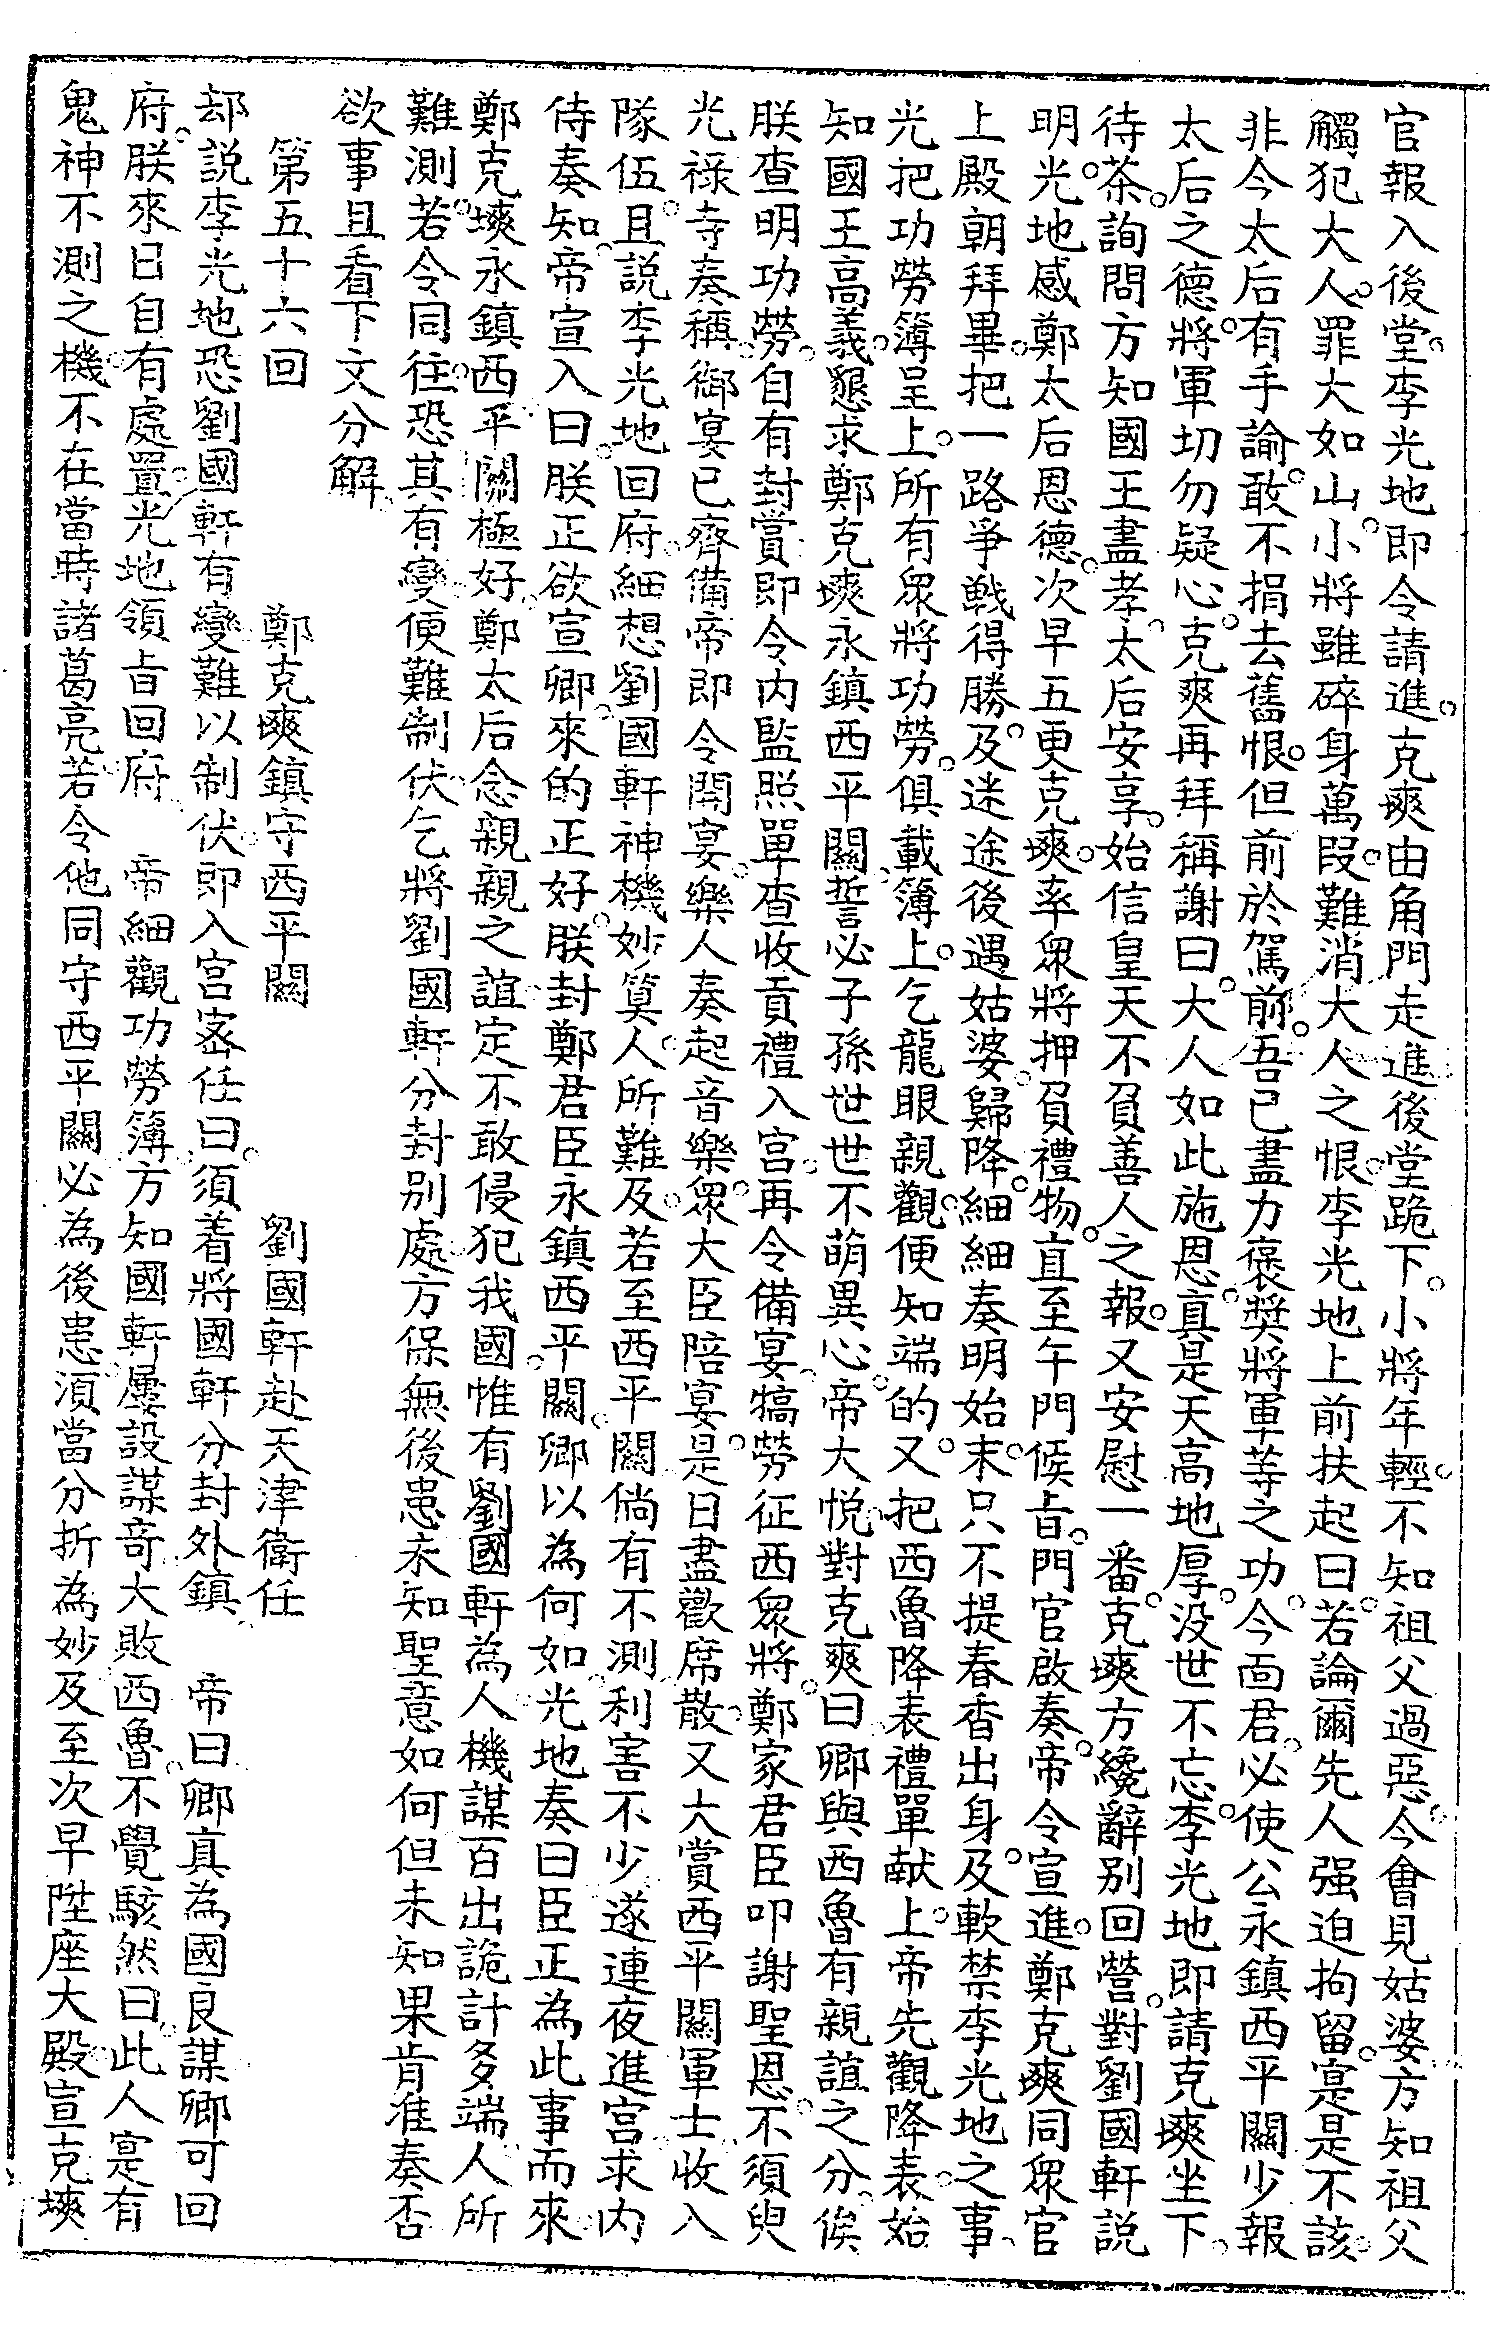 官報入後堂李光地即令請進克塽由角門走進後堂跪下小將年輕不知祖父過惡今會見姑婆方知祖父
觸犯大人罪大如山小將雖碎身萬段難消大人之恨李光地上前扶起曰若論爾先人强迫拘留寔是不該
非今太后有手諭敢不捐去舊恨但前於駕前吾已盡力褒奬將軍等之功今面君必使公永鎮西平關少報
太后之德將軍切勿疑心克爽再拜稱謝曰大人如此施恩真是天高地厚没世不忘李光地即請克塽坐下
待茶詢問方知國王盡孝太后安享始信皇天不負善人之報又安慰一番克塽方纔辭别回營對劉國軒説
明光地感鄭太后恩德次早五更克塽率眾將押負禮物直至午門候旨門官啟奏帝令宣進鄭克塽同眾官
上殿朝拜畢把一路爭戦得勝及迷途後遇姑婆歸降細細奏明始末只不提春香出身及軟禁李光地之事
光把功勞簿呈上所有眾將功勞俱載簿上乞龍眼親觀便知端的又把西魯降表禮單献上帝先觀降表始
知國王高義懇求鄭克塽永鎮西平關誓必子孫世世不萌異心帝大悦對克爽曰卿與西魯有親誼之分俟
朕查明功勞自有封賞即令内監照單查收貢禮入宫再令備宴犒勞征西眾將鄭家君臣叩謝聖恩不須臾
光禄寺奏稱御宴已齊備帝即令開宴樂人奏起音樂眾大臣陪宴是日盡歡席散又大賞西平關軍士收入
隊伍且説李光地回府細想劉國軒神機妙算人所難及若至西平關倘有不測利害不少遂連夜進宫求内
侍奏知帝宣入曰朕正欲宣卿來的正好朕封鄭君臣永鎮西平關卿以為何如光地奏曰臣正為此事而來
鄭克塽永鎮西平關極好鄭太后念親親之誼定不敢侵犯我國惟有劉國軒為人機謀百出詭計多端人所
難測若令同往恐其有變便難制伏乞將劉國軒分封别處方保無後患未知聖意如何但未知果肯准奏否
欲事且看下文分解
第五十六回　鄭克塽鎮守西平關　劉國軒赴天津衛任
却説李光地恐劉國軒有變難以制伏即入宫密任曰須着將國軒分封外鎮　帝曰卿真為國良謀卿可回
府朕來日自有處置光地領旨回府　帝細觀功勞簿方知國軒屢設謀奇大敗西魯不覺駭然曰此人寔有
鬼神不測之機不在當時諸葛亮若令他同守西平關必為後患湏當分折為妙及至次早陞座大殿宣克塽